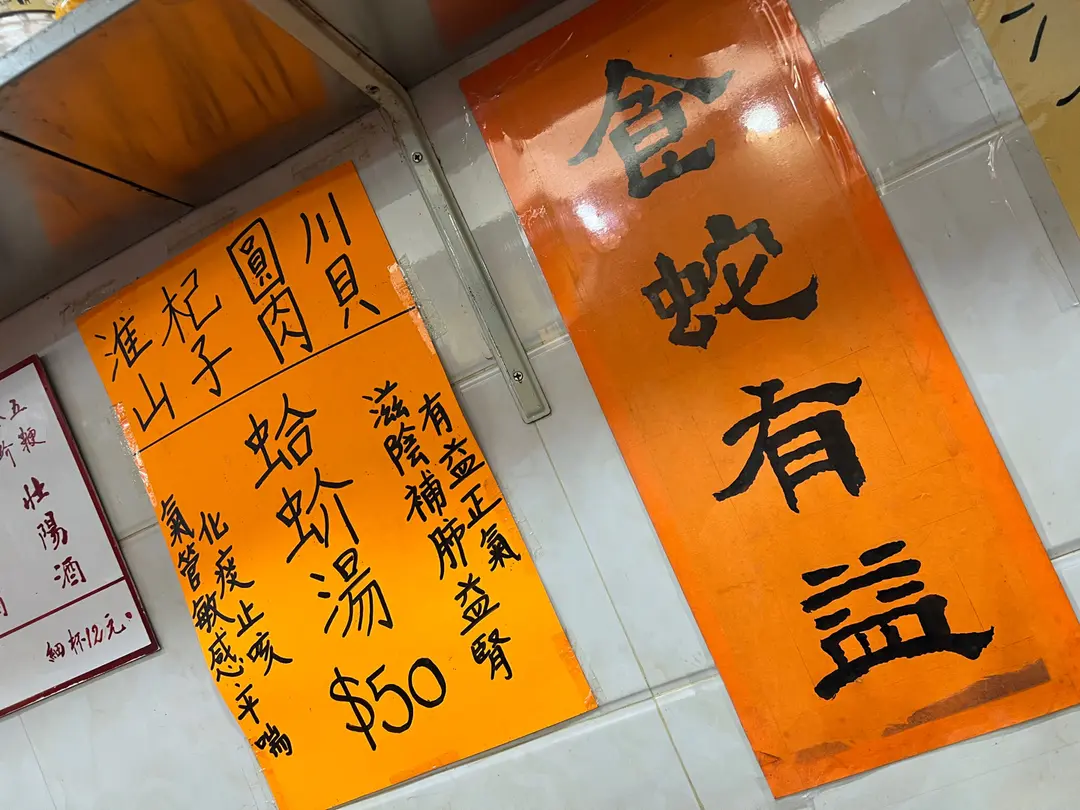 食蛇有益
川貝
圓肉
杞子
淮山
有益正氣
滋陰補肺益腎
蛤蚧湯
$50
化痰止咳
氣管敏感平喘
五鞭
蚧
壯陽酒
細杯12元